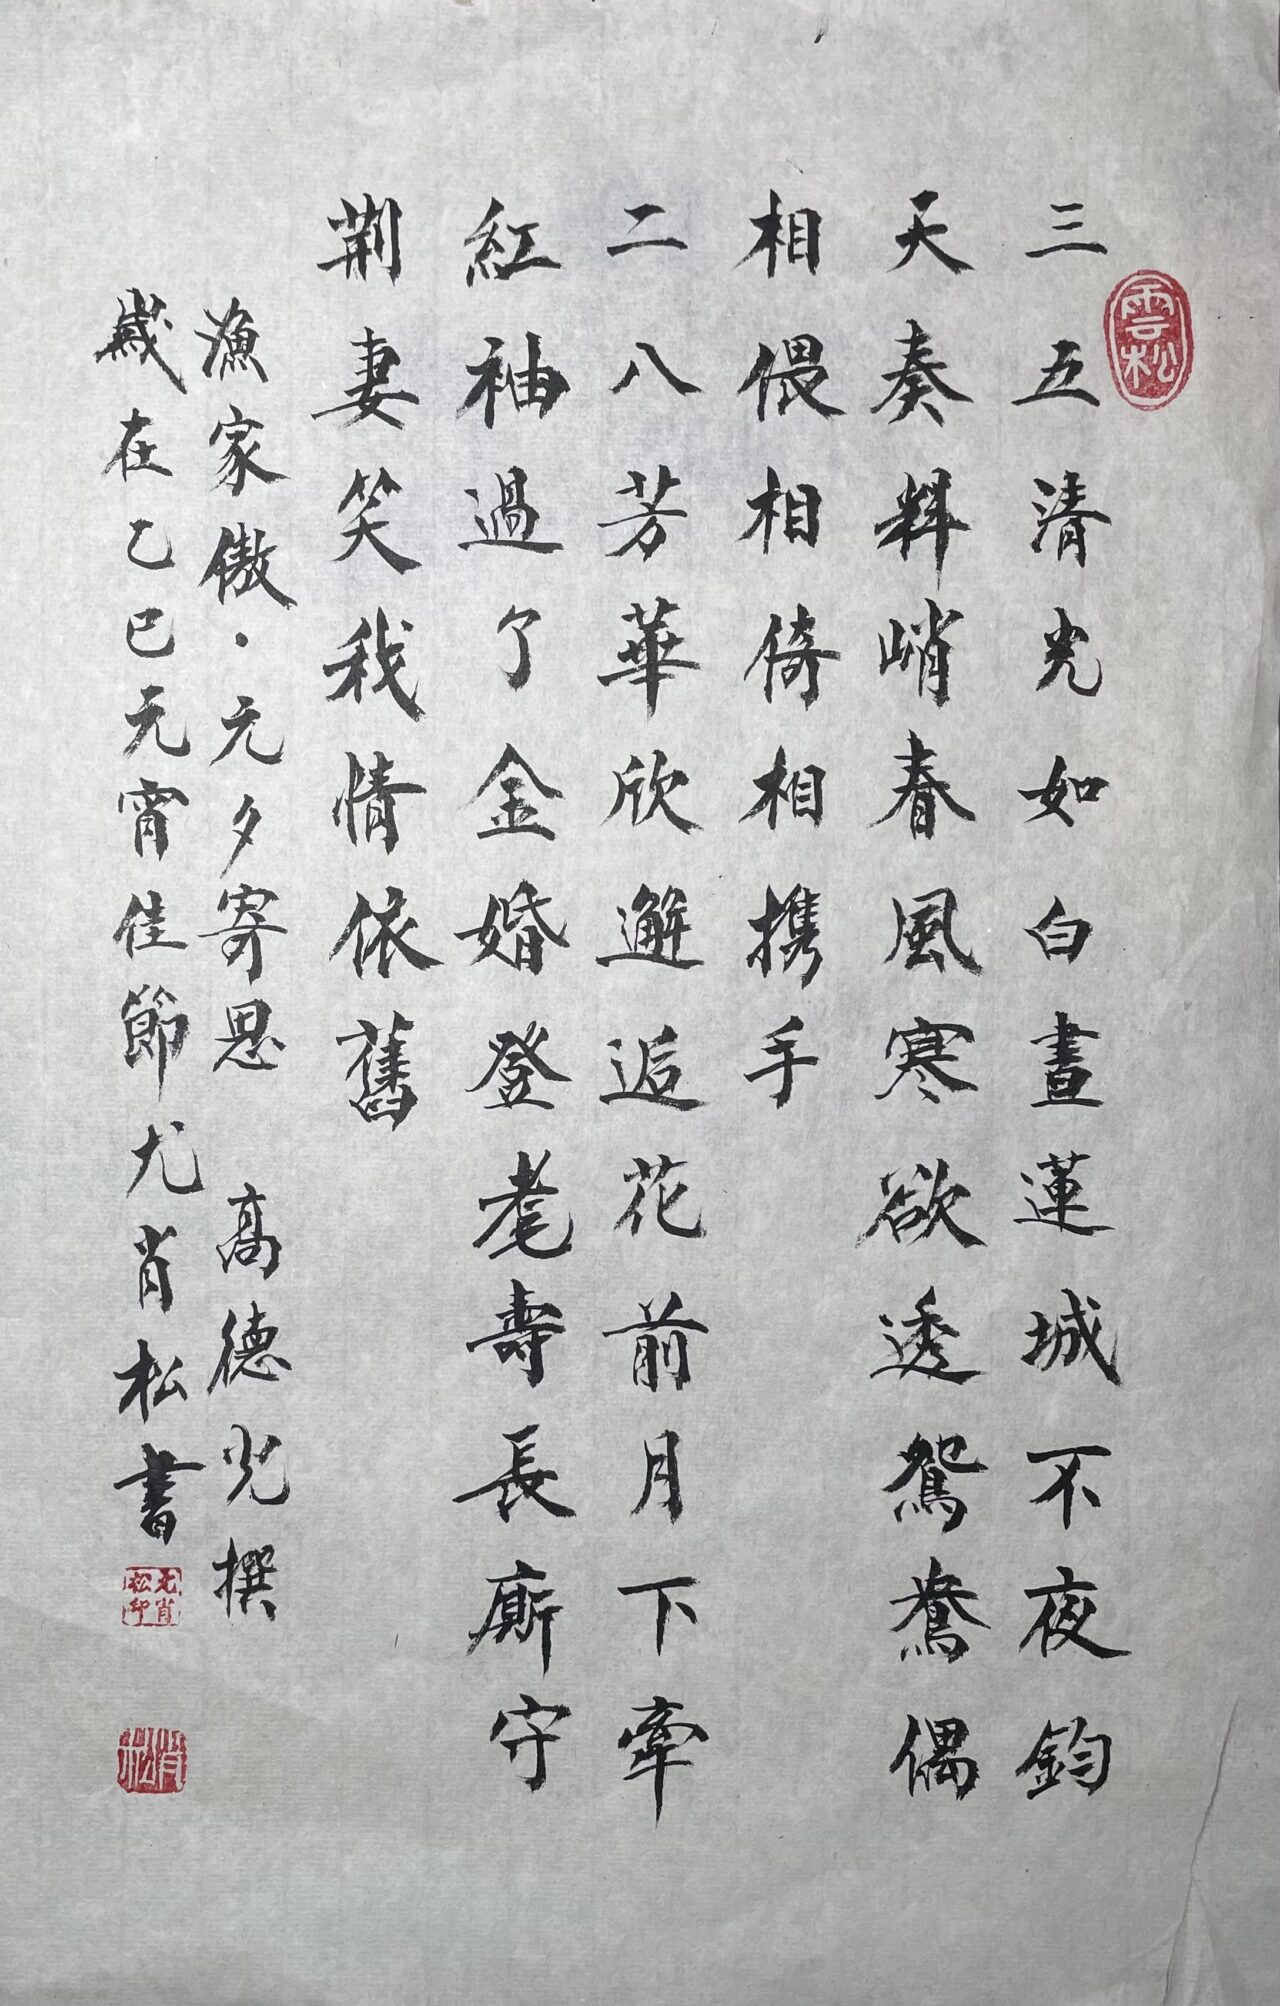 雲松
三五清光如白晝蓮城不夜鈞
天奏料峭春風寒欲透鴛鴦偶
相偎相倚相攜手
二八芳華欣邂逅花前月下牽
紅袖過了金婚登耄壽長廝守
荆妻笑我情依舊
漁家傲·元夕寄思 高德光撰
歲在乙巳元宵佳節尤肖松書
尤肖松印
肖松